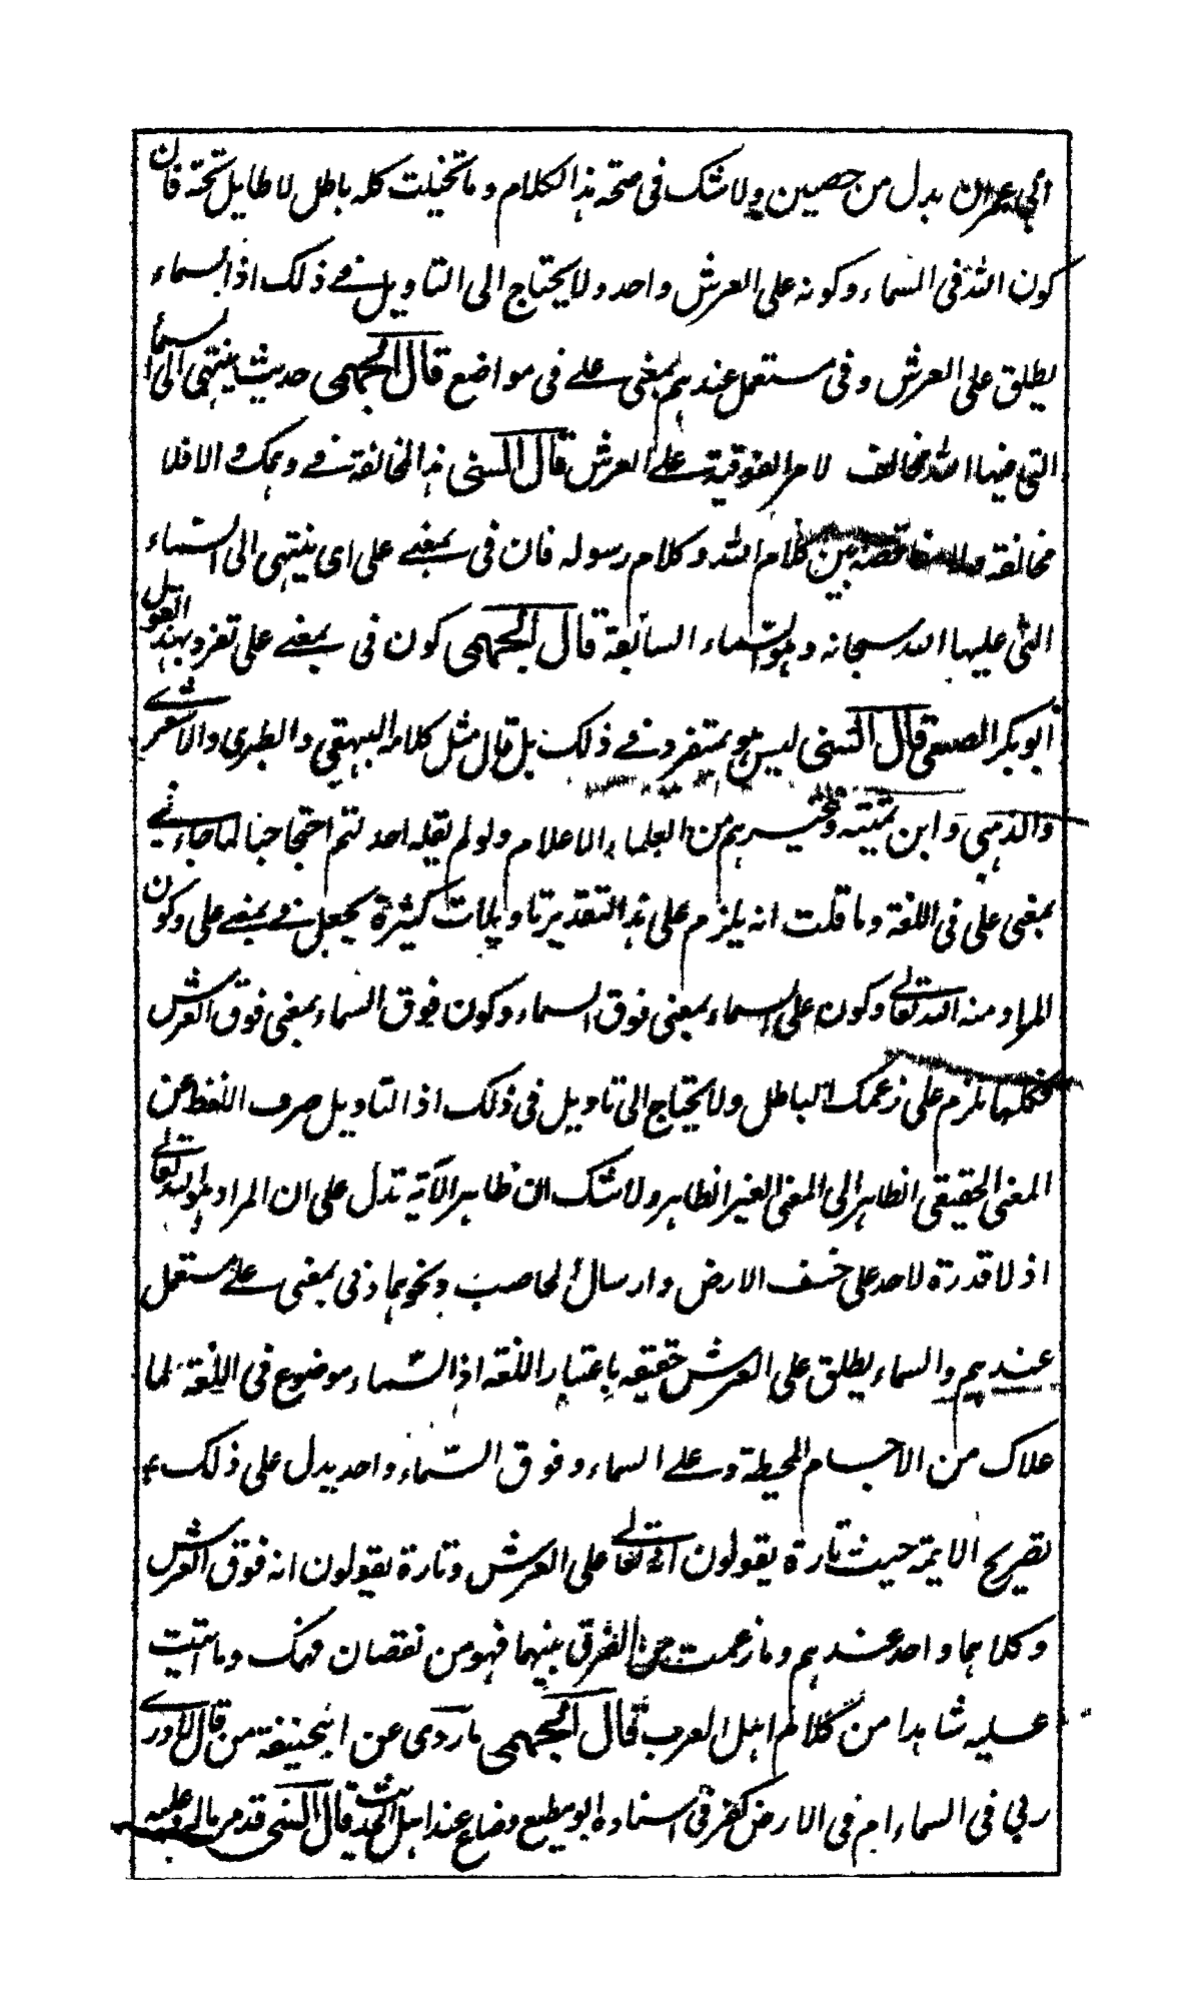 ابي عمران بدل من حصين ولا شك في صحة هذا الكلام وما تخيلت كله باطل لا طايل تحته فان
كون الله في السماء وكونه على العرش واحد ولا يحتاج الى التاويل في ذلك اذ السماء
يطلق على العرش وفي مستعمل عندهم بمعنى على في مواضع قال الجهمي حديث ينتهي الى السماء
التي فيها الله مخالف لامر الفوقية على العرش قال السني هذا المخالفة في وهمك والا فلا
مخالفة ولا مناقضة بين كلام الله وكلام رسوله فان في بمعنى على اي ينتهي الى السماء
التي عليها الله سبحانه وهو السماء السابعة قال الجهمي كون في بمعنى على تفرد بهذا القول
ابو بكر الصبغي قال السني ليس هو بمتفرد في ذلك بل قال مثل كلامه البيهقي والطبري والاشعري
والذهبي وابن تيمية وغيرهم من العلماء الاعلام ولو لم يقله احد لتم احتجاجنا لما جاء في
بمعنى على في اللغة وما قلت انه يلزم على هذا التقدير تاويلات كثيرة يجعل في بمعنى على وكون
المراد منه الله تعالى وكون على السماء بمعنى فوق السماء وكون فوق السماء بمعنى فوق العرش
فكلها يلزم على زعمك الباطل ولا يحتاج الى تاويل في ذلك اذ التاويل صرف اللفظ عن
المعنى الحقيقي الظاهر الى المعنى الغير الظاهر ولا شك ان ظاهر الآية تدل على ان المراد هو الله تعالى
اذ لا قدرة لاحد على خسف الارض وارسال الحاصب ونحوهما وفي بمعنى على مستعمل
عندهم والسماء يطلق على العرش حقيقه باعتبار اللغة اذ السماء موضوع في اللغة لما
علاك من الاجسام المحيطة وعلى السماء وفوق السماء واحد يدل على ذلك
تصريح الايمة حيث تارة يقولون انه تعالى على العرش وتارة يقولون انه فوق العرش
وكلاهما واحد عندهم وما زعمت من الفرق بينهما فهو من نقصان فهمك وما اتيت
عليه شاهدا من كلام اهل العرب قال الجهمي ما روى عن ابيحنيفة من قال لا ادرى
ربي في السماء ام في الارض كفر في اسناده ابو مطيع وضاع عند اهل الحديث قال السني قد مر ما له وعليه